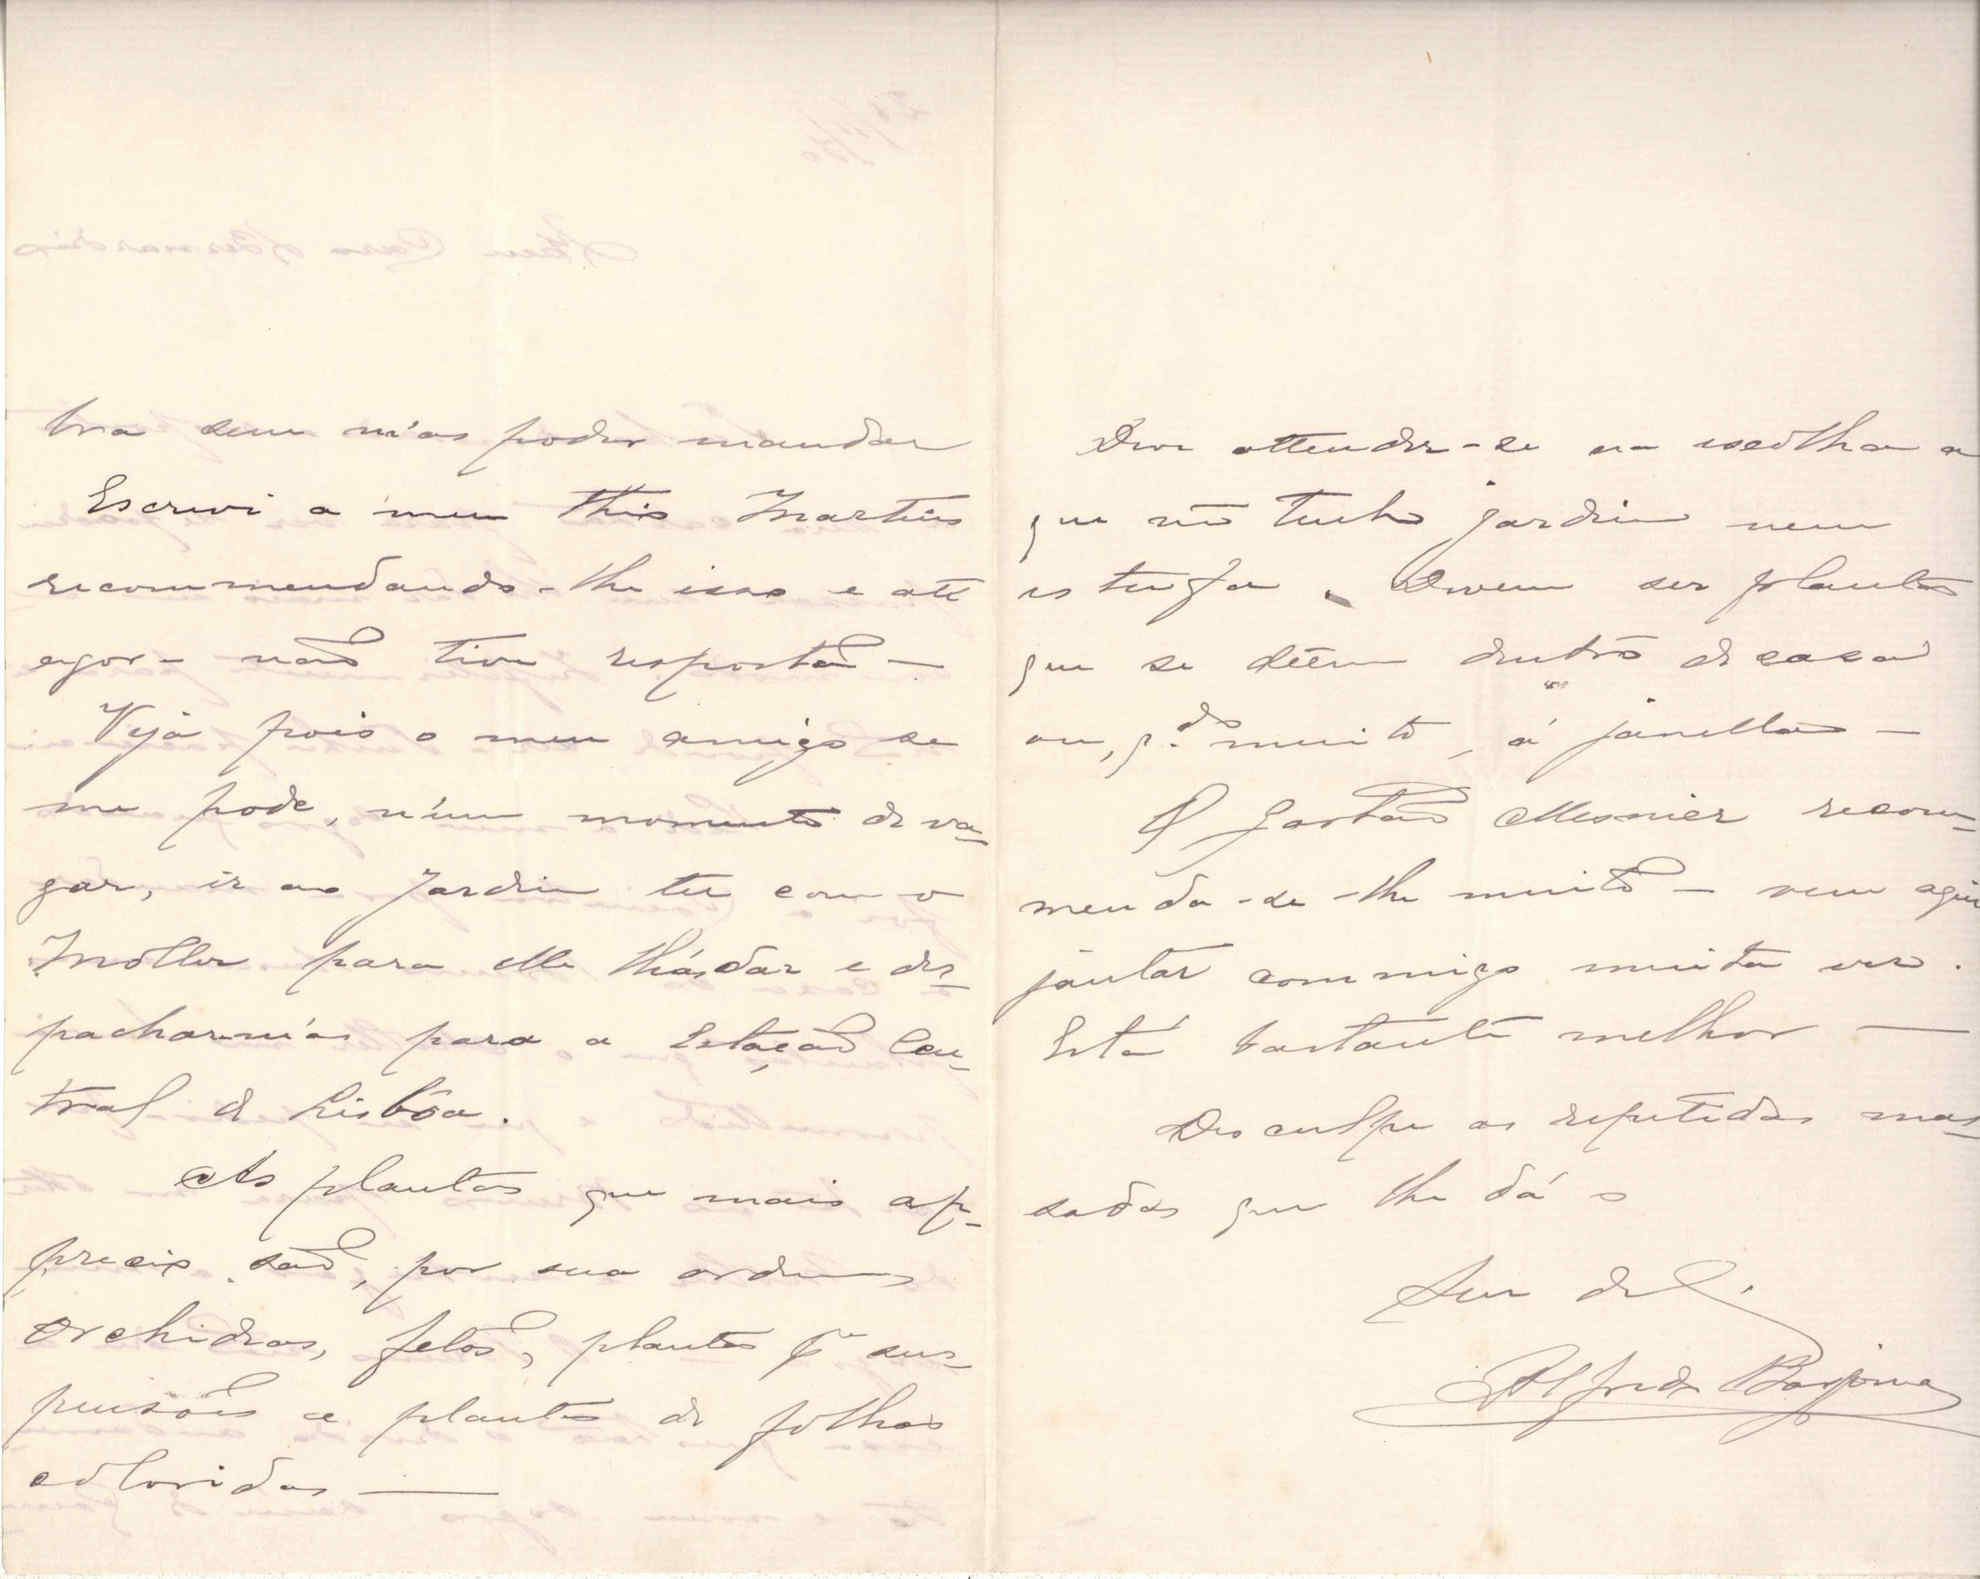 bra sem m'as poder mandar
Escrevi a meu thio Martins
recommendando-lhe isso e até
agora não tive resposta —
Veja pois o meu amigo se
me pode, n'um momento de va-
gar, ir ao Jardim ter com o
Moller para elle lh'as dar e des-
pachar-m'as para a Estação Cen-
tral de Lisbôa.
As plantas que mais ap-
precio são, por sua ordem
Orchideas, fetos, plantas p.ª sus-
pensões e plantas de folhas
coloridas —
Deve attender-se na escolha a
que não tenho jardim nem
estufa. Devem ser plantas
que se dêem dentro de casa
ou, q.do muito, á janella —
O Gastão Mesnier recom-
menda-se-lhe muito — vem aqui
jantar commigo muita vez.
Está bastante melhor —
Desculpe as repetidas mas-
sadas que lhe dá o
Seu del.
Alfredo Barjona